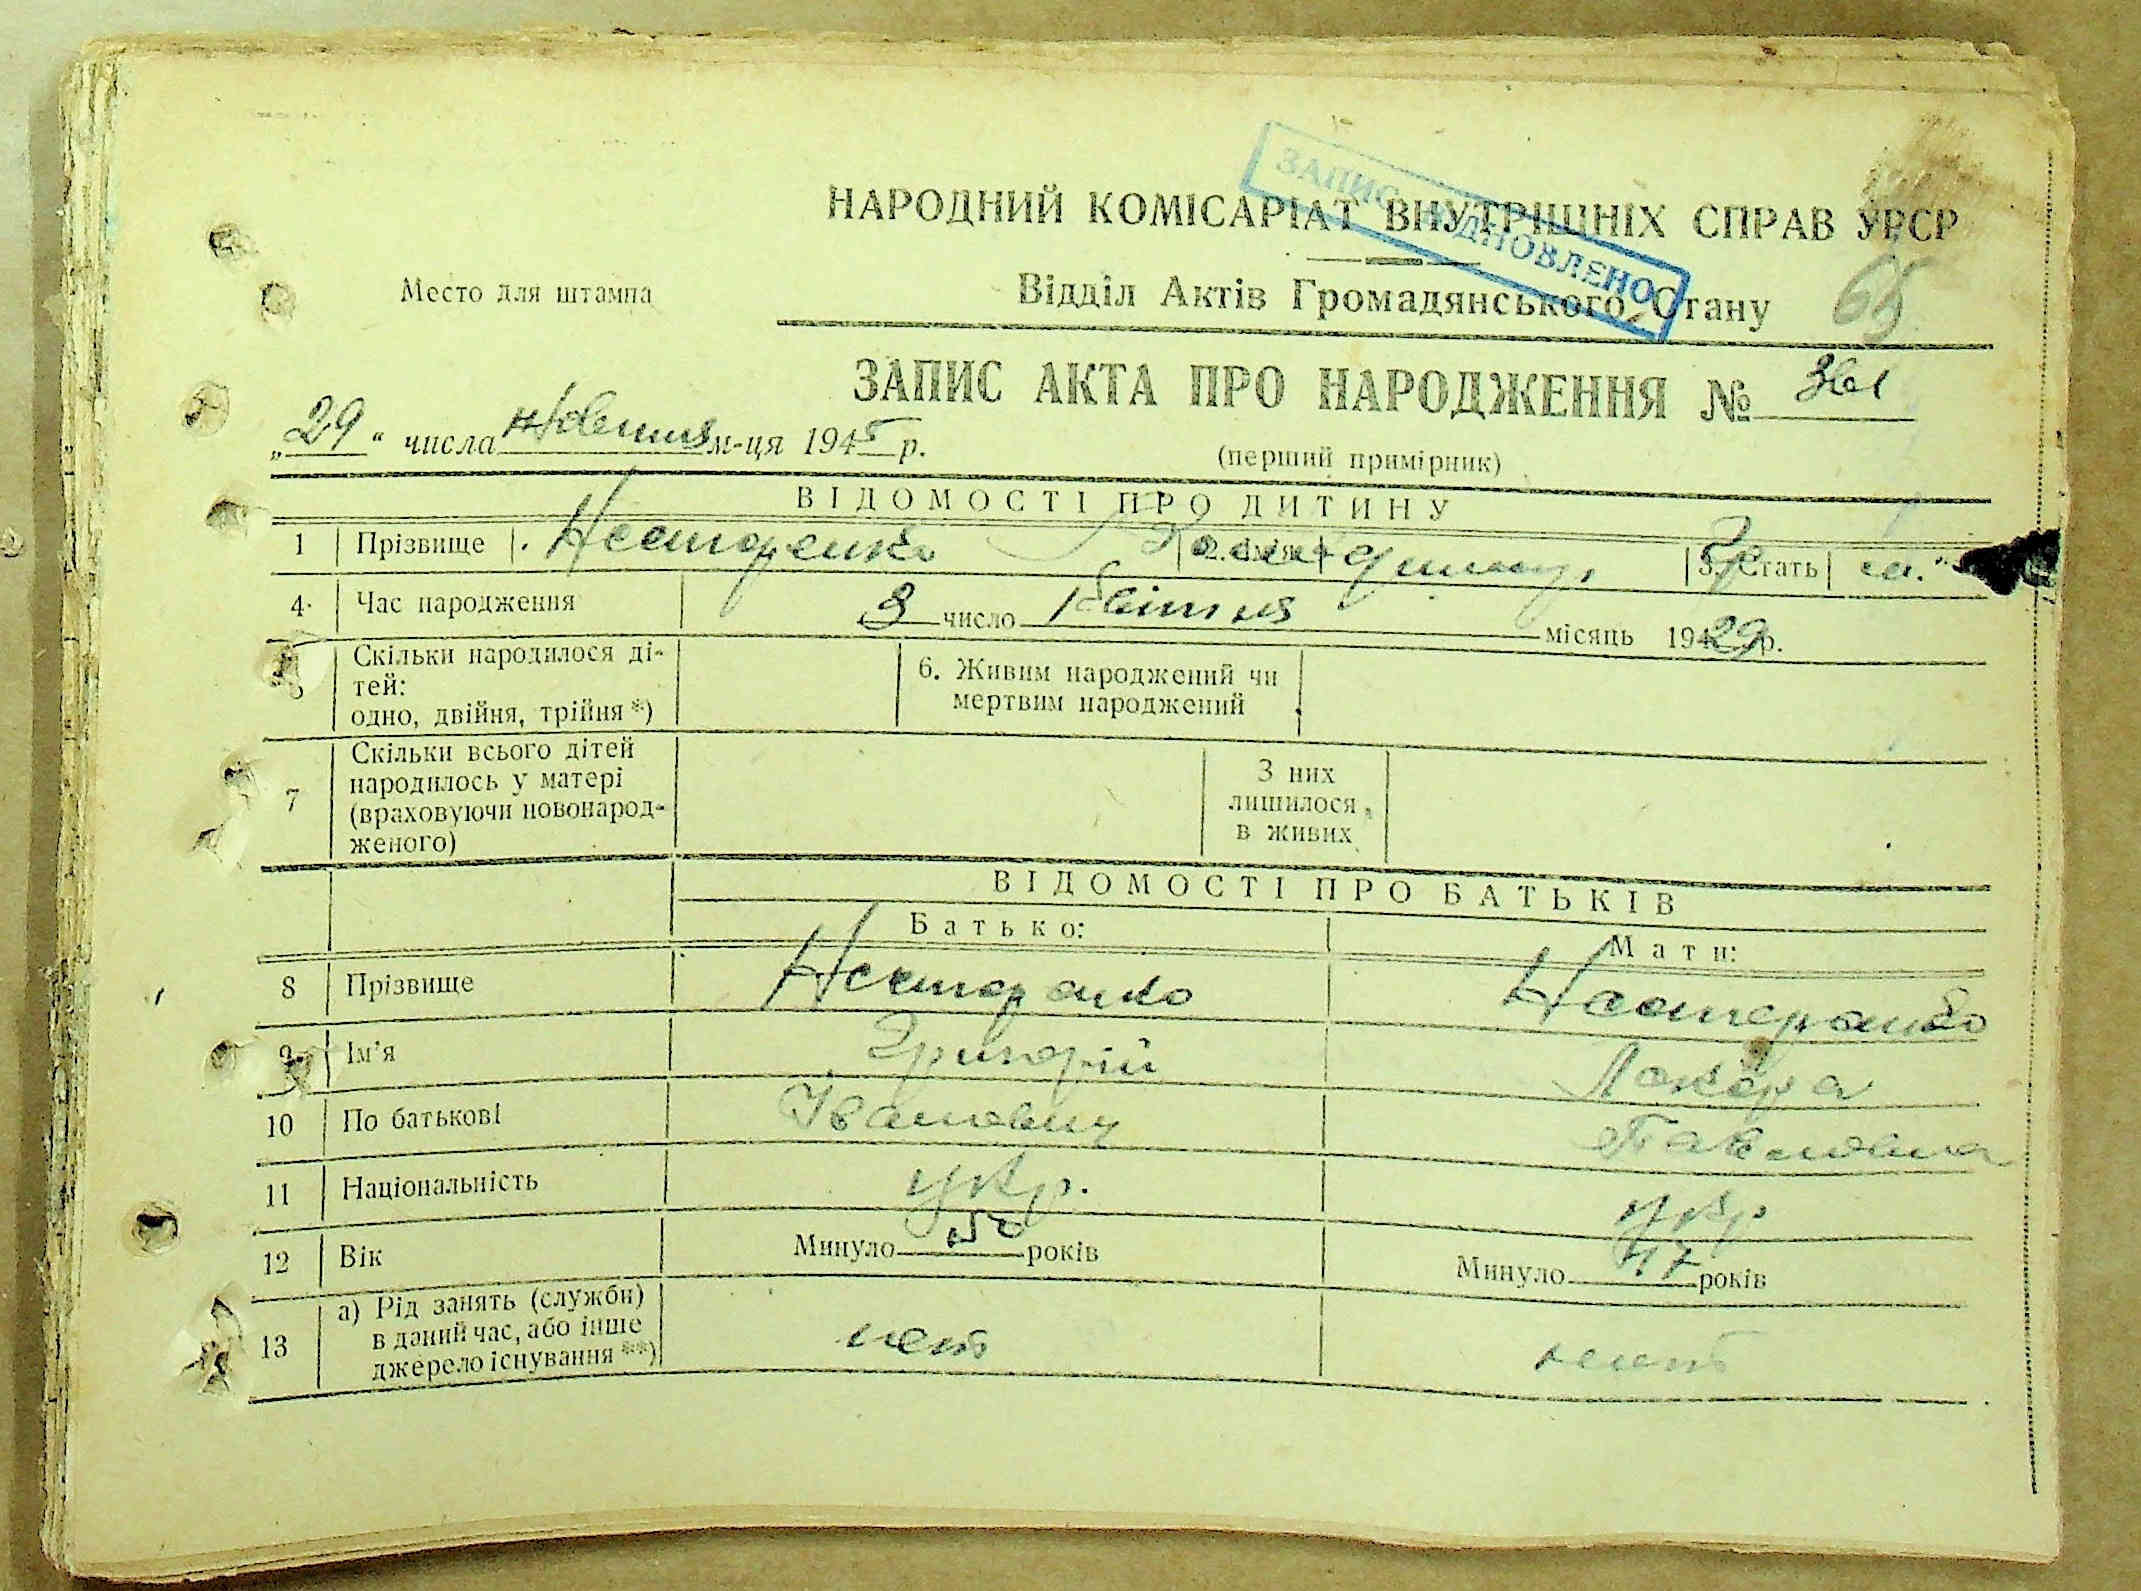 ЗАПИС ВІДНОВЛЕНО
НАРОДНИЙ КОМІСАРІАТ ВНУТРІШНІХ СПРАВ УРСР
Место для штампа
Відділ Актів Громадянського Стану
65
ЗАПИС АКТА ПРО НАРОДЖЕННЯ №
„29“ числа жовтня м-ця 1945 р.
(перший примірник)
ВІДОМОСТІ ПРО ДИТИНУ
1 Прізвище Нестеренко 2. Ім'я 3. Стать
4. Час народження 8 число квітня місяць 1929 р.
5 Скільки народилося ді-
тей:
одно, двійня, трійня *)
6. Живим народжений чи
мертвим народжений
7 Скільки всього дітей
народилось у матері
(враховуючи новонарод-
женого)
З них
лишилося
в живих
ВІДОМОСТІ ПРО БАТЬКІВ
Батько: Мати:
8 Прізвище Нестеренко Нестеренко
9 Ім'я Григорій
10 По батькові Іванович Павловна
11 Національність укр. укр
12 Вік Минуло 50 років Минуло 47 років
13 а) Рід занять (служби)
в даний час, або інше
джерело існування **)
нет нет